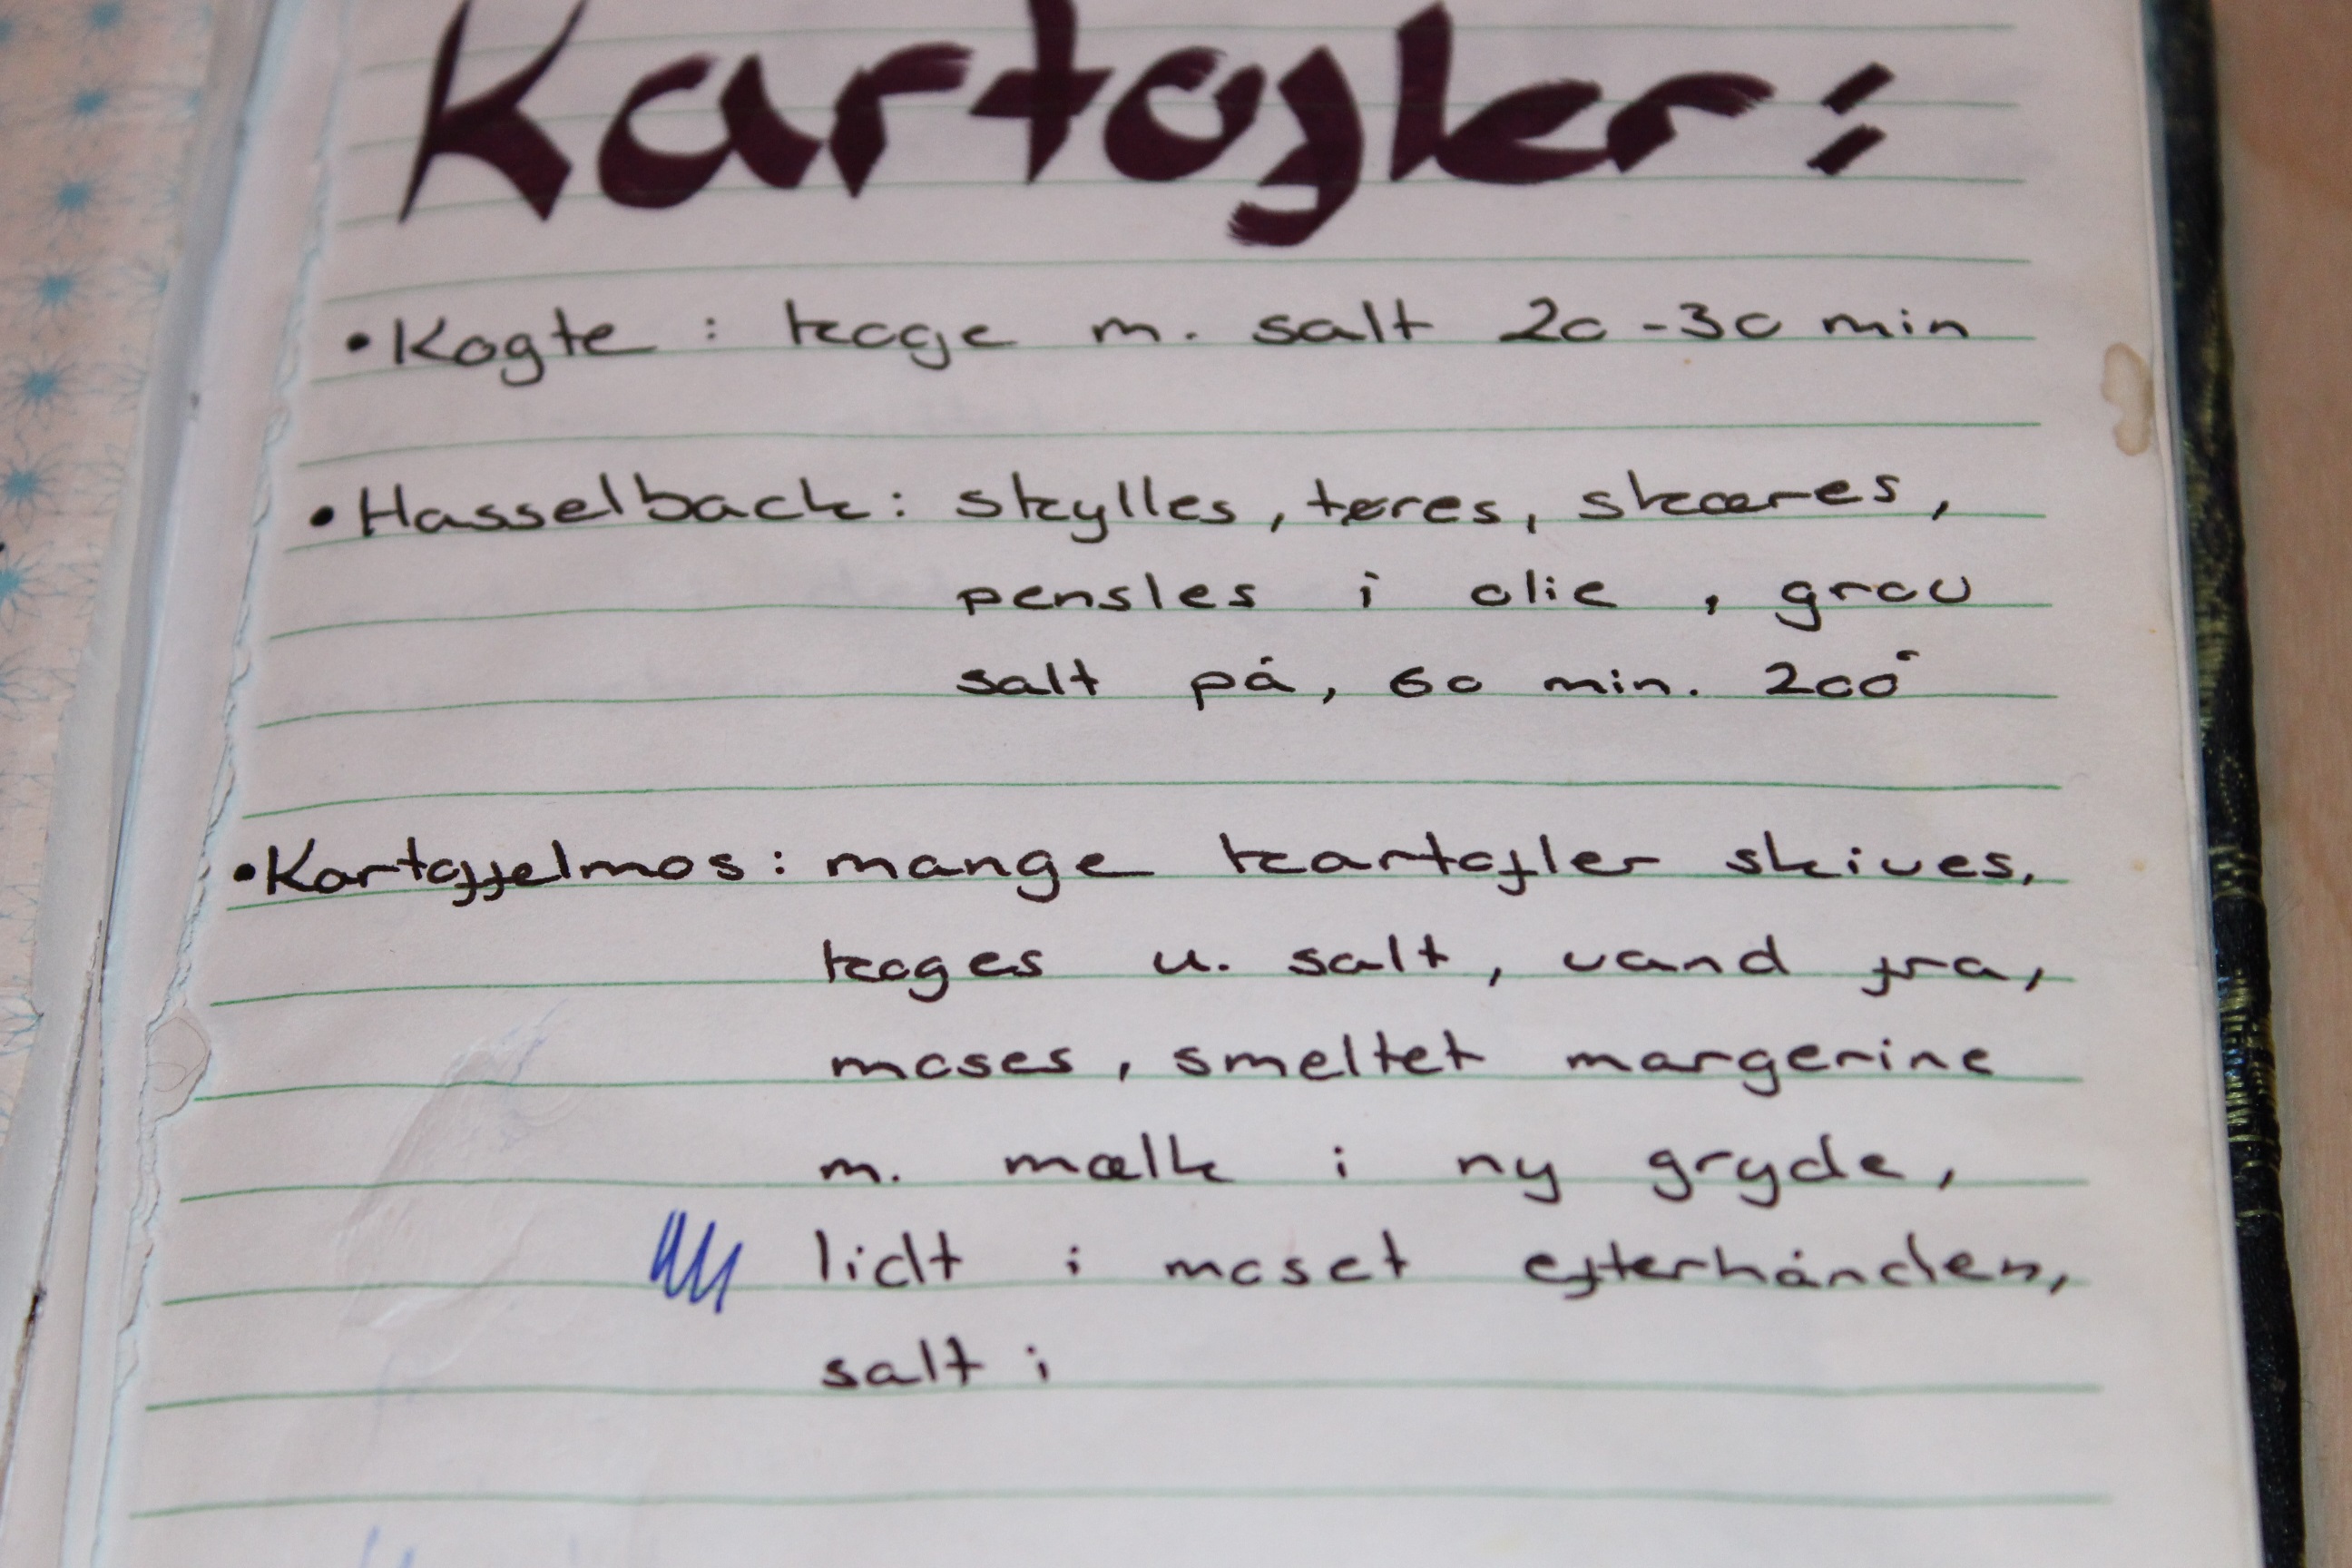 Kartofler:
• Kogte : koge m. salt 20-30 min
• Hasselback: skylles, tøres, skæres,
pensles i olie, grov
salt på, 60 min. 200°
• Kartoffelmos: mange kartofler skives,
koges u. salt, vand fra,
moses, smeltet margerine
m. mælk i ny gryde,
lidt i moset efterhånden,
salt i